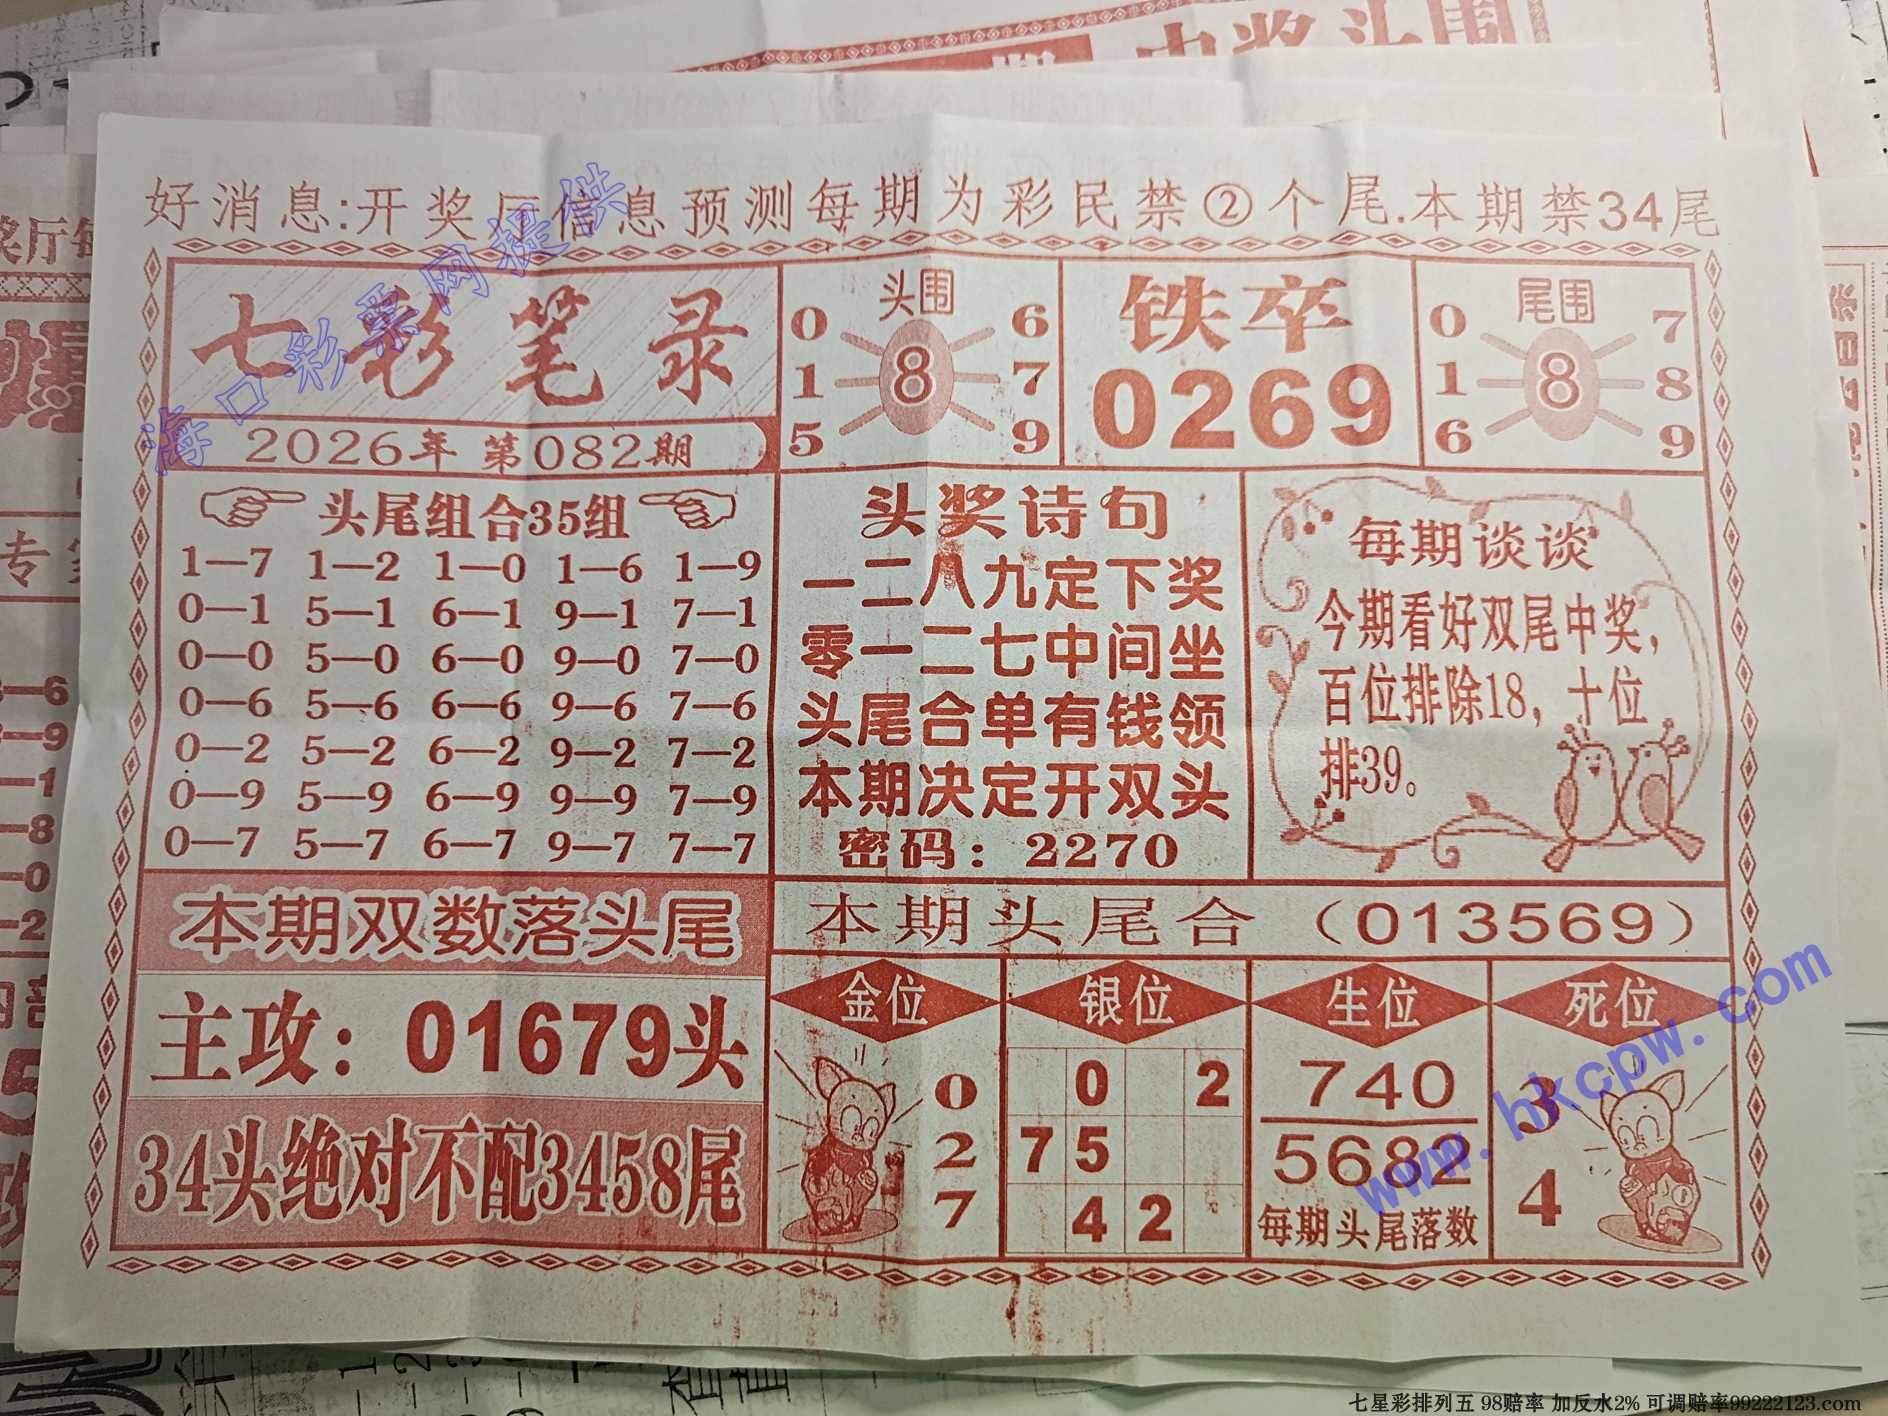 中奖头围
好消息:开奖厅信息预测每期为彩民禁②个尾.本期禁34尾
七彩笔录
2026年 第082期
头围
0 6
1 8 7
5 9
铁卒
0269
尾围
0 7
1 8 8
6 9
头尾组合35组
1—7 1—2 1—0 1—6 1—9
0—1 5—1 6—1 9—1 7—1
0—0 5—0 6—0 9—0 7—0
0—6 5—6 6—6 9—6 7—6
0—2 5—2 6—2 9—2 7—2
0—9 5—9 6—9 9—9 7—9
0—7 5—7 6—7 9—7 7—7
头奖诗句
一二八九定下奖
零一二七中间坐
头尾合单有钱领
本期决定开双头
密码：2270
每期谈谈
今期看好双尾中奖，
百位排除18，十位
排39。
本期双数落头尾
主攻：01679头
34头绝对不配3458尾
本期头尾合（013569）
金位
0
2
7
银位
0 2
7 5
4 2
生位
740
5682
每期头尾落数
死位
3
4
海口彩票网提供
www.hkcpw.com
七星彩排列五 98赔率 加反水2% 可调赔率99222123.com